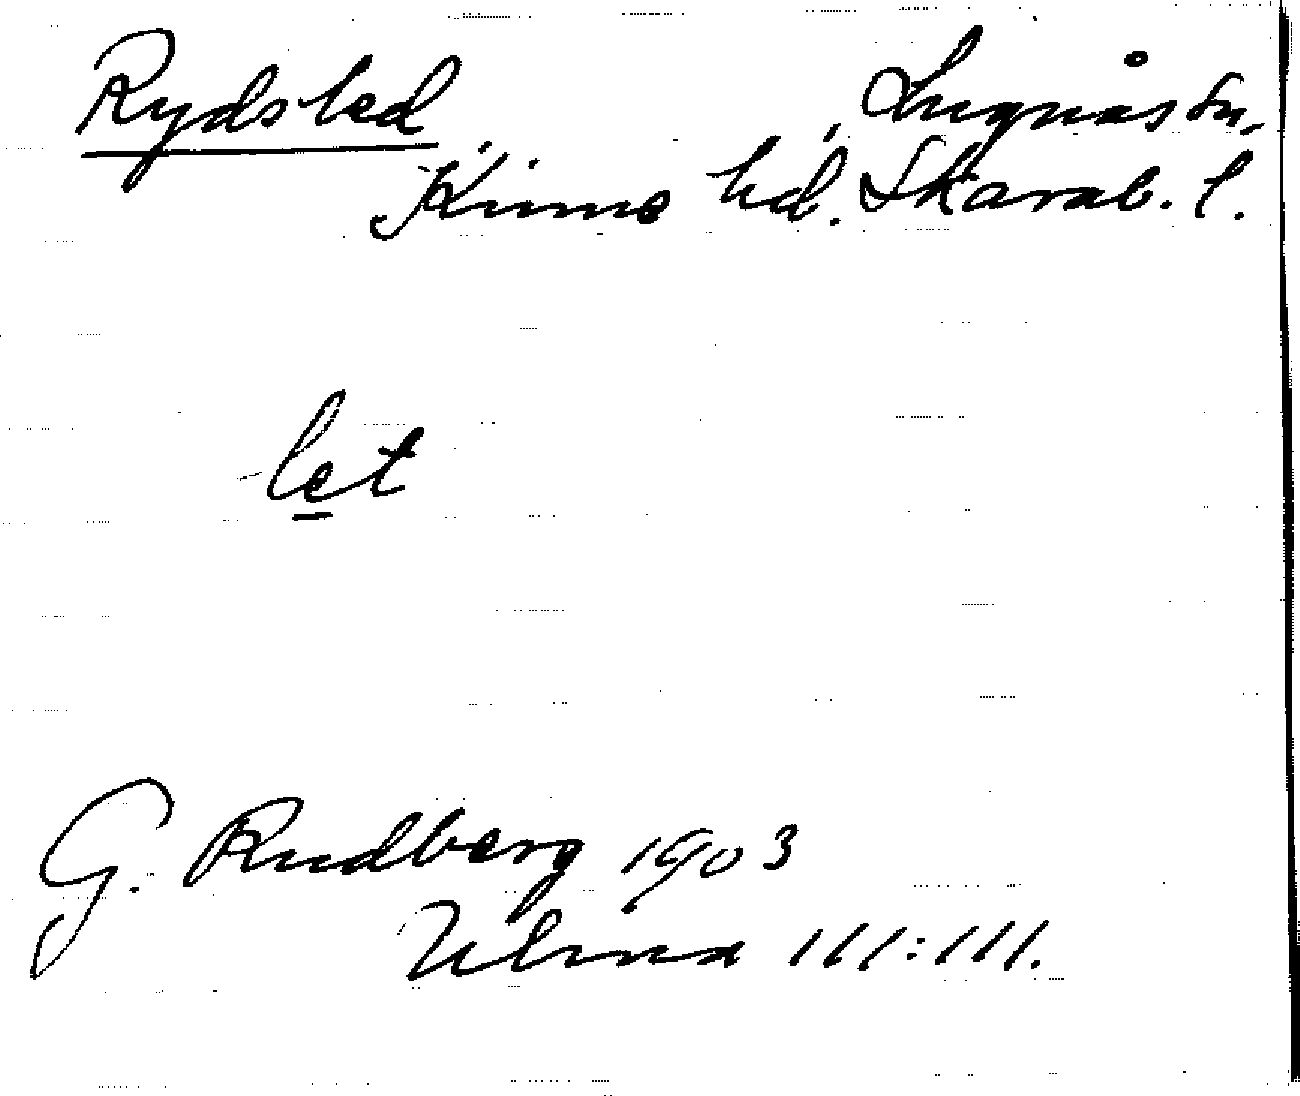 Rydsled Lugnås sn,
Kinne hd. Skarab. l.
-let
G. Rudberg 1903
Ulma 111:111.